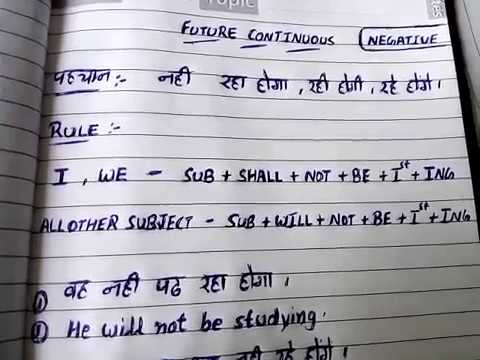 Topic
FUTURE CONTINUOUS NEGATIVE
पहचान:- नही रहा होगा, रही होगी, रहे होंगे।
RULE :-
I, WE - SUB + SHALL + NOT + BE + Ist + ING
ALL OTHER SUBJECT - SUB + WILL + NOT + BE + Ist + ING
① वह नही पढ रहा होगा।
① He will not be studying.
नही रहे होंगे।